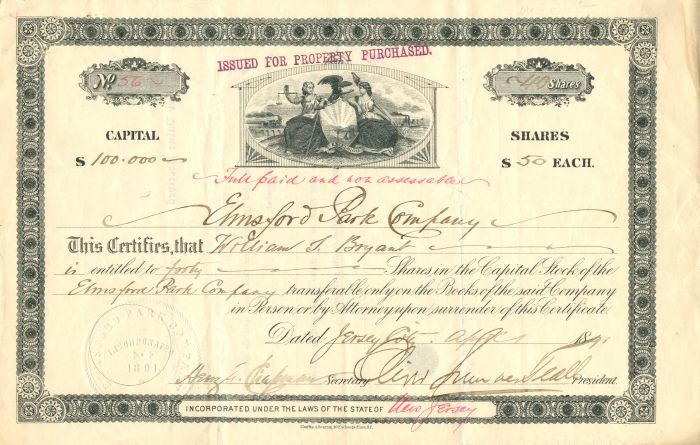 ISSUED FOR PROPERTY PURCHASED.
No. 56
40 Shares
CAPITAL
$ 100.000
SHARES
$ 50 EACH.
Full paid and non assessable
Elmsford Park Company
This Certifies, that William S. Bryant
is entitled to forty Shares in the Capital Stock of the
Elmsford Park Company transferable only on the Books of the said Company
in Person or by Attorney upon surrender of this Certificate.
Dated Jersey City 189
ELMSFORD PARK COMPANY
INCORPORATED
1891
Secretary
President.
INCORPORATED UNDER THE LAWS OF THE STATE OF New Jersey